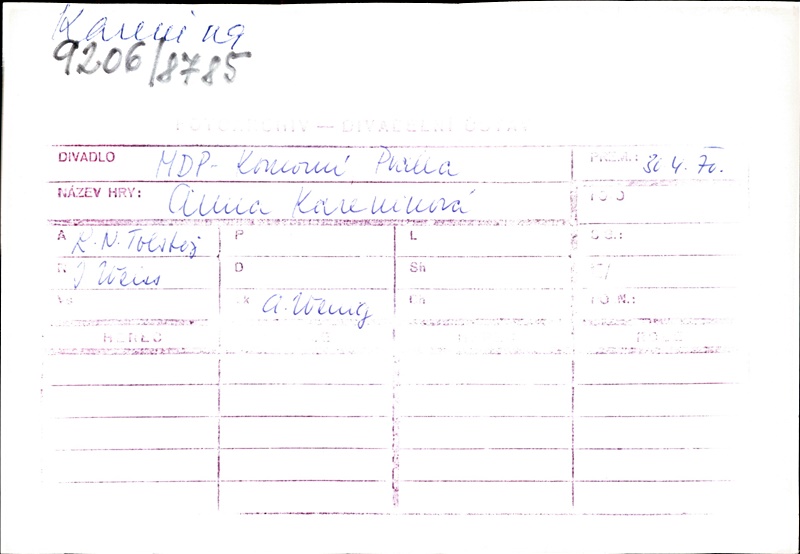 Karenina
9206/8785
FOTOARCHIV — DIVADELNÍ ÚSTAV
DIVADLO MDP - Komorní Praha PREM.: 30 4. 70.
NÁZEV HRY: Anna Kareninová FOTO
A L. N. Tolstoj P L
R J Weiss D Sh
Vk A. Wenig FOTO N.:
HEREC ROLE